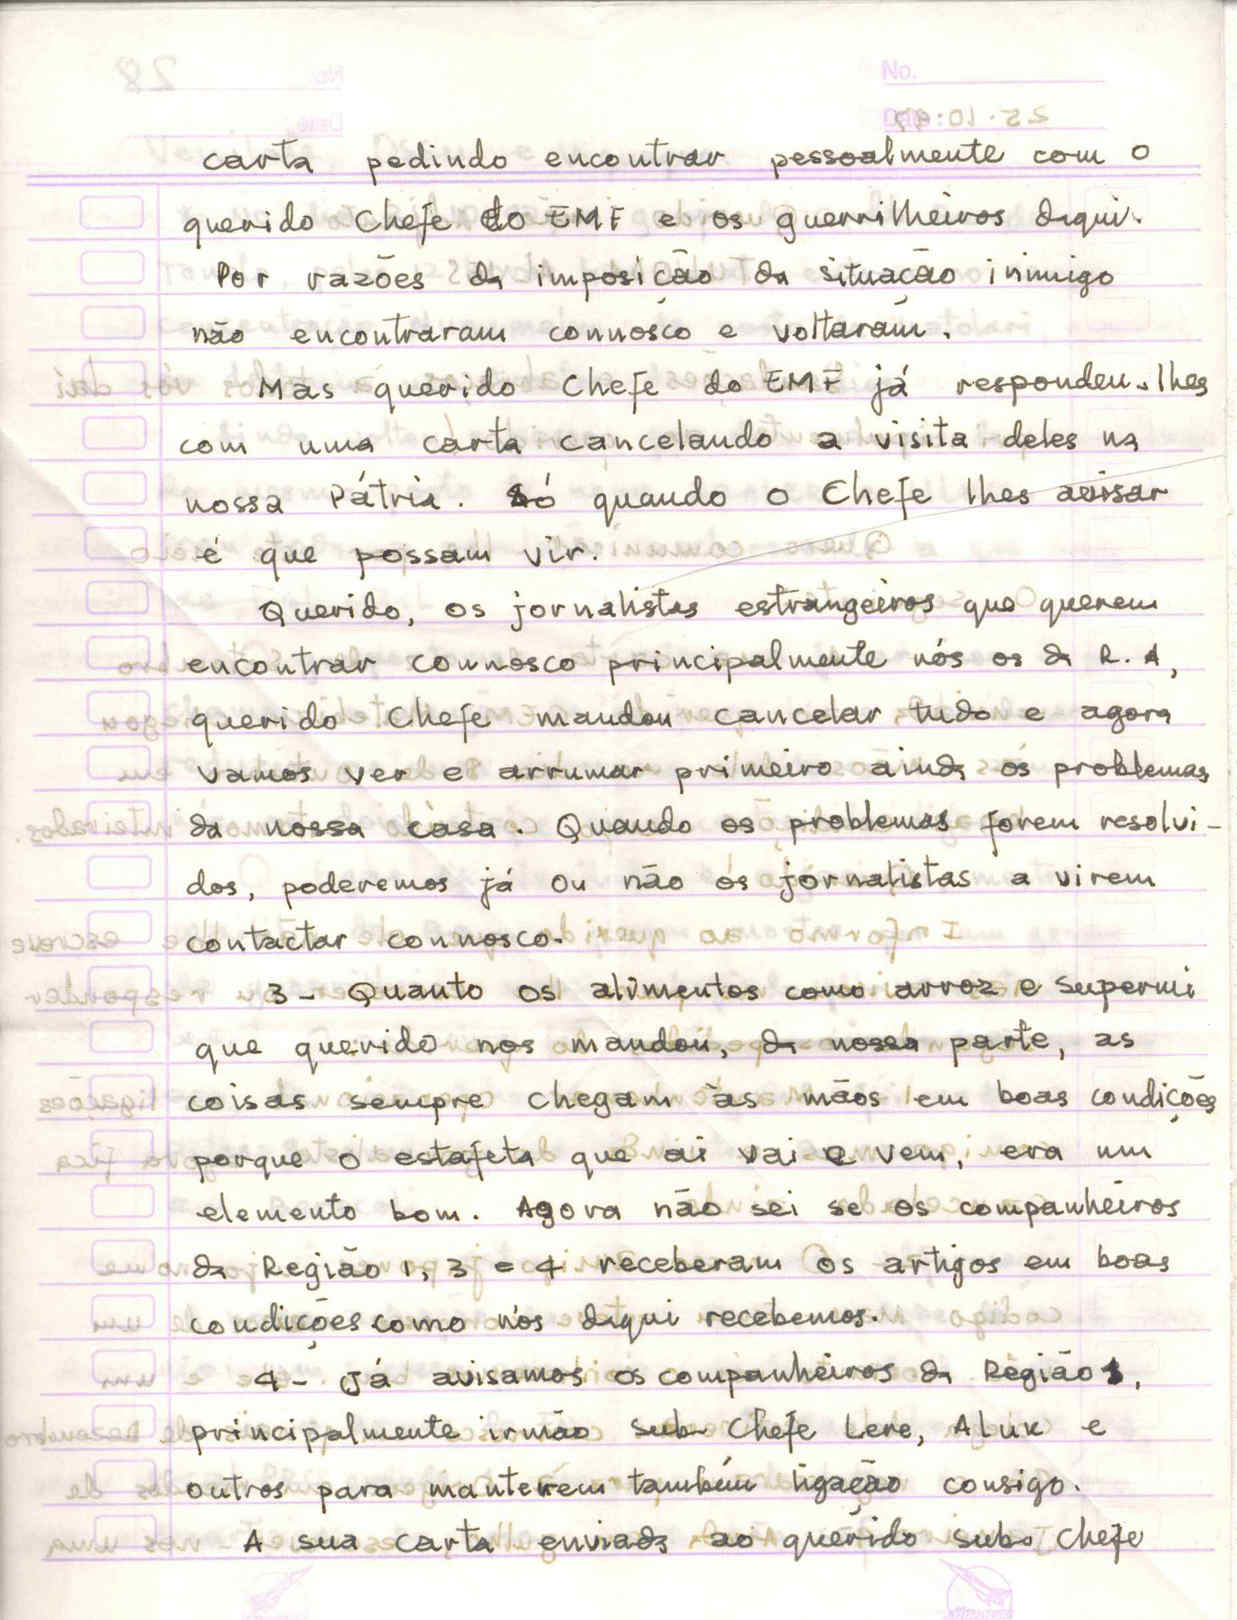 No.
carta pedindo encontrar pessoalmente com o
querido Chefe do EMF e os guerrilheiros daqui.
Por razões da imposição da situação inimigo
não encontraram connosco e voltaram.
Mas querido Chefe do EMF já respondeu-lhes
com uma carta cancelando a visita deles na
nossa Pátria. Só quando o Chefe lhes avisar
é que possam vir.
Querido, os jornalistas estrangeiros que querem
encontrar connosco principalmente nós os da R.A,
querido Chefe mandou cancelar tudo e agora
vamos ver e arrumar primeiro ainda os problemas
da nossa casa. Quando os problemas forem resolvi-
dos, poderemos já ou não os jornalistas a virem
contactar connosco.
3- Quanto os alimentos como arroz e Supermi
que querido nos mandou, da nossa parte, as
coisas sempre chegam às mãos em boas condições
porque o estafeta que ai vai e vem, era um
elemento bom. Agora não sei se os companheiros
da Região 1, 3 e 4 receberam os artigos em boas
condições como nós daqui recebemos.
4- Já avisamos os companheiros da Região 1,
principalmente irmão Sub Chefe Lere, Aluk e
outros para manterem também ligação consigo.
A sua carta enviada ao querido sub. Chefe